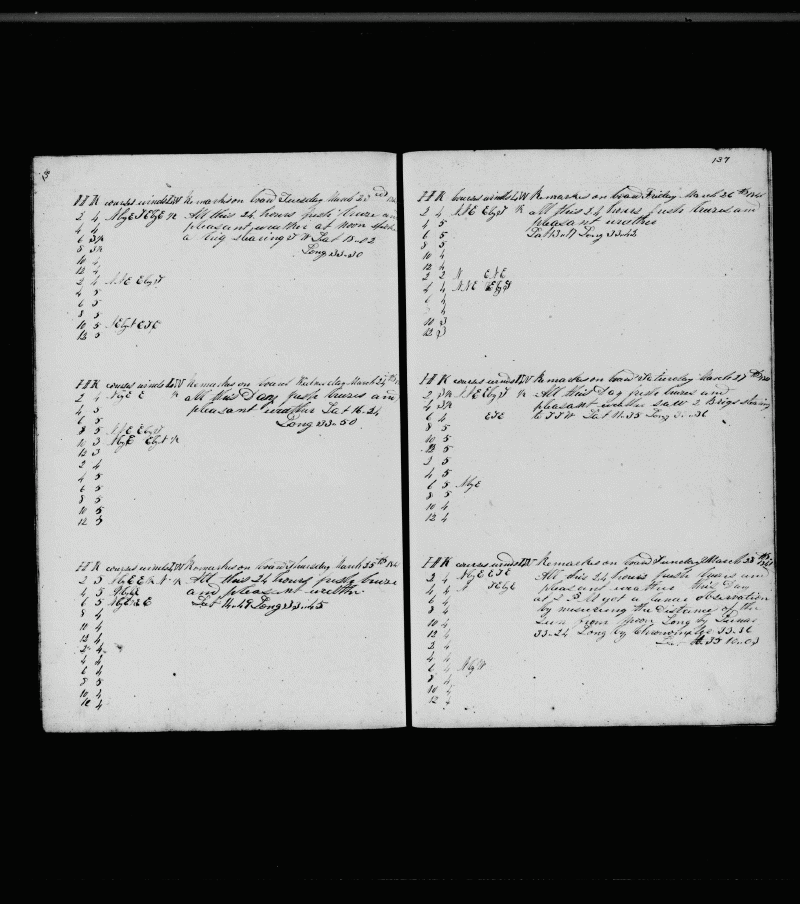 137
H K courses winds LW Remarks on board Tuesday March 23rd
2 4 NbyE SEbyE All this 24 hours fresh breeze and
4 4 pleasant weather at noon spoke
6 3½ a brig stearing Lat 18-02
8 3½ Long 33-30
10 4
12 4
2 4 NNE EbyS
4 5
6 5
8 5
10 5 ESE
12 5
H K courses winds LW Remarks on board Wednesday March 24th
2 4 NbyE E all this Day fresh breezes and
4 5 pleasant weather Lat 16-24
6 5 Long 33-50
8 5 NNE EbyS
10 5 NbyE EbyN
12 5
2 4
4 5
6 5
8 5
10 5
12 5
H K courses winds LW Remarks on board Thursday March 25th
2 5 NbyE All this 24 hours fresh breeze
4 5 and pleasant weather
6 5 NbyE E Lat 14-49 Long 33-45
8 4
10 4
12 4
2 4
4 4
6 4
8 5
10 4
12 4
H K Courses winds LW Remarks on board Friday March 26th
2 4 NNE EbyS all this 24 hours fresh breezes and
4 5 pleasant weather
6 5 Lat 13-17 Long 33-42
8 5
10 4
12 4
2 2 N ENE
4 4 NNE
6 4
4
10 3
12
H K courses winds LW Remarks on board Saturday March 27th
2 3½ NNE EbyS all this Day fresh breezes and
4 3½ pleasant weather saw 2 Brigs stearing
6 4 ESE to Lat 11-35 Long
8 5
10 5
12 5
2 5
4 5
6 5 NbyE
8 5
10 4
12 4
H K Courses winds LW Remarks on board Sunday March 28th
2 4 NbyE ESE All this 24 hours fresh breezes and
4 4 N pleasant weather this Day
6 4 at got a lunar observation
8 4 by measuring the Distance of the
10 4 Sun from Moon Long by Lunar
12 4 33-24 Long by chronometer 33-36
2 4
4 4
6 4
8 4
10 4
12